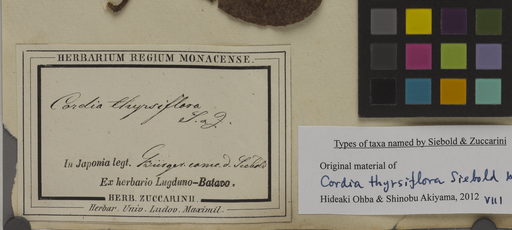 HERBARIUM REGIUM MONACENSE.
Cordia thyrsiflora
S. & Z.
In Japonia legt. Bürger comm. d. Siebold
Ex herbario Lugduno-Batavo.
HERB. ZUCCARINII.
Herbar. Univ. Ludov. Maximil.
Types of taxa named by Siebold & Zuccarini
Original material of
Cordia thyrsiflora Siebold
Hideaki Ohba & Shinobu Akiyama, 2012 VIII